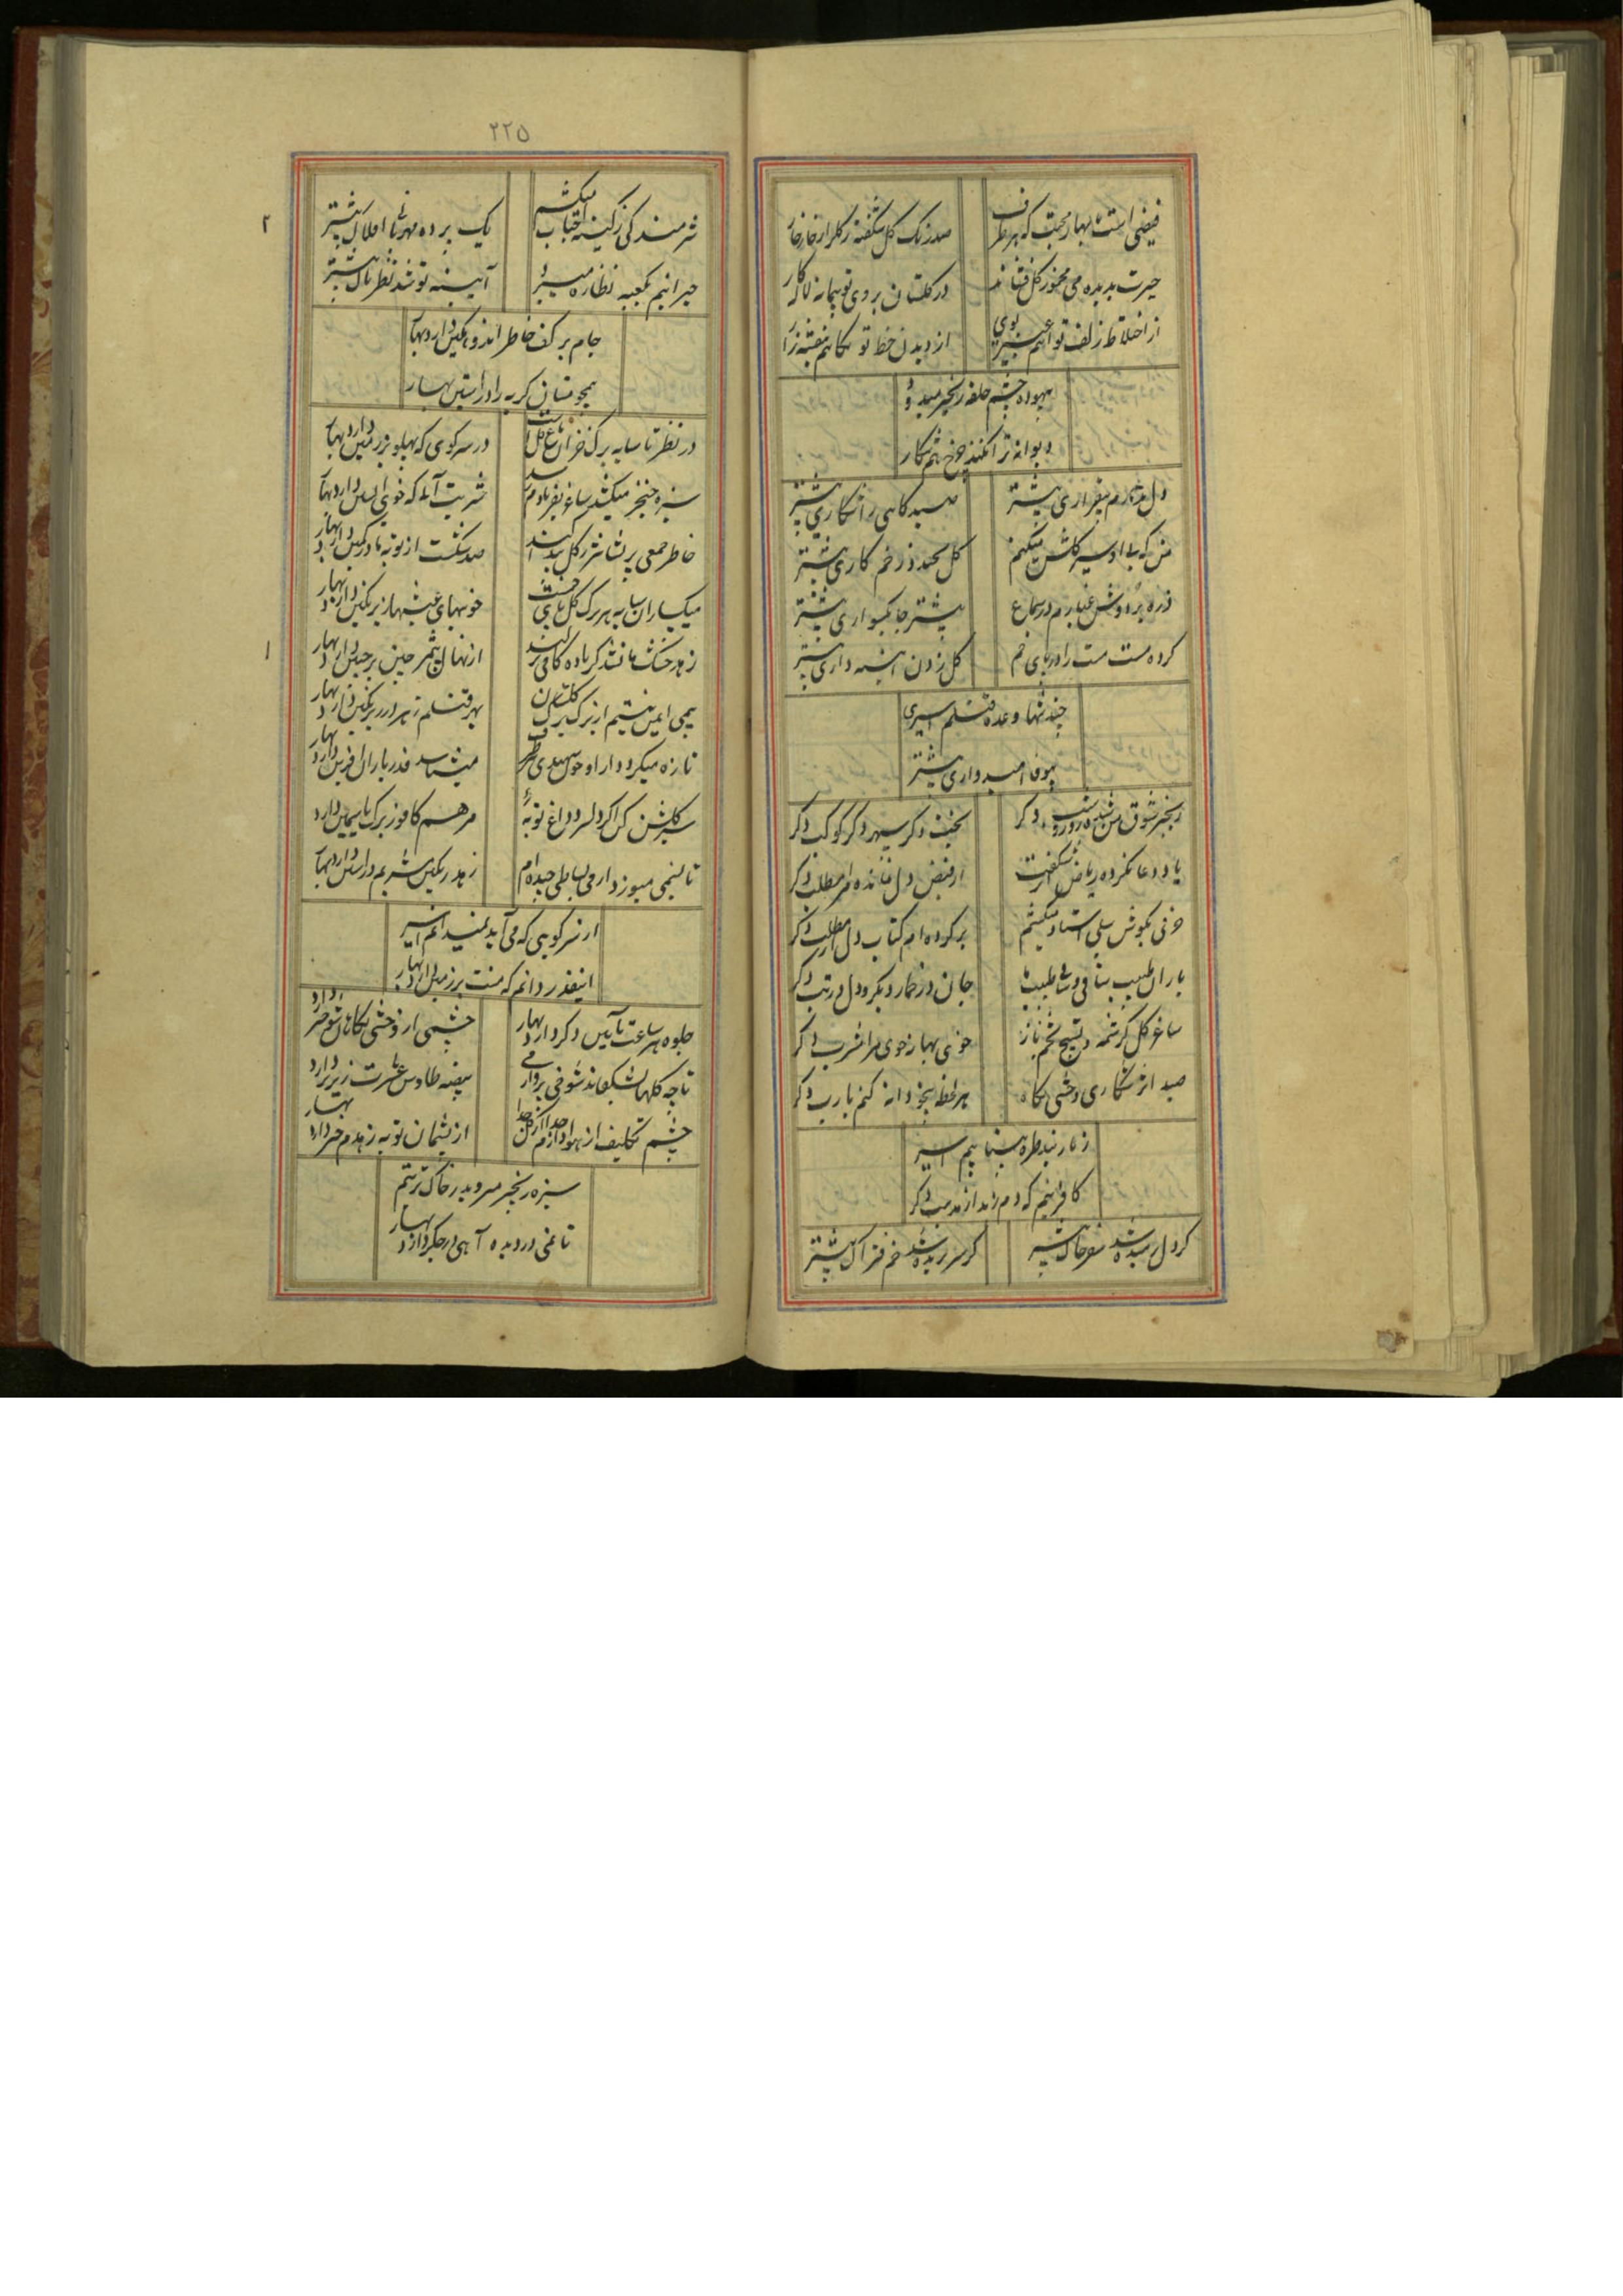 فیضی است با بهار محبت که هر طرف صد رنگ گل شکفته ز گلزار خار خار
حیرت بدیده می مخمور گل فشاند در گلستان بروی تو پیمانه لاله کار
از اختلاط زلف تو آهم عبیر بوی از دیدن خط تو نگاهم بنفشه زار
بیهوده چشم حلقه زنجیر میدود
دیوانه ترا نکند چرخ هم شکار
دل ندارم بیقراری بیشتر صیدگاهی را شکاری بیشتر
من که بی او سیر گلشن میکنم گل بخندد زخم کاری بیشتر
ذره بر دوش غبارم در سماع بیشتر جا بیسواری بیشتر
کرده مست مست را در پای خم گل زدن اندیشه داری بیشتر
چند تنها وعده قتلم اسیری
بیوفا امیدواری بیشتر
زنجیر شوق من شده روز و شب دگر بخت دگر سپهر دگر کوکب دگر
یاد دعا نکرده ریاض شکفتن است از فیض دل نمانده مرا مطلب دگر
حرفی بگوش سیلی استاد میکشم بر کرده ام کتاب دل از مطلب دگر
یاران طبیب ساقی و ساقی طبیب ما جان در خمار دیگر و دل در تب دگر
ساغر گل کرشمه و تسبیح تخم ناز خوی بهار خوی مرا مشرب دگر
صید اثر شکاری وحشی نگاه هر لحظه بیخودانه کنم یارب دگر
زنار بند طره بیتابیم اسیر
کافر نیم که دم زند از مذهب دگر
گر دل رمیده شد سفر خاک بیشتر گر سر بریده شد خم فتراک بیشتر
۲۲۵
شرمندگی ز کینه احباب میکشم یک پرده مهربانی افلاک بیشتر
حیرانیم بکعبه نظاره میبرد آیینه تو شد نظر پاک بیشتر
۲
جام بر کف خاطر اندوهگین دارد بهار
همچو مستان گریه را در آستین دارد بهار
در نظر تا سایه برگ خزان باغ گل است در سر کوی که پهلو بر زمین دارد بهار
سبزه خنجر میکشد ساغر بفریادم رسد شربت آبی که خوی آتشین دارد بهار
خاطر جمعی پریشانتر ز گل پیدا کند صد شکست از توبه ما در کمین دارد بهار
میگساران سایه هر برگ گل پای خمست خونبهای عیشها زیر نگین دارد بهار
زهد خشک ما نشد گر باده کافی تر کنند از نهال بی ثمر چین بر جبین دارد بهار
۱
بیمی ایمن نیستیم از برگ برگ گلستان بهر قتلم زهر در زیر نگین دارد بهار
تازه میگردد میشناسد قدر یاران آفرین دارد بهار
سیر گلشن کن اگر دلسرد داغ توبه مرهم کافور برگ یاسمین دارد بهار
تا نسیمی میوزد دام می بساطی چیده ام زهد رنگین مشربم در آستین دارد بهار
از سر کویی که می آید نمیدانم اسیر
اینقدر دانم که منت بر زمین دارد بهار
جلوه هر ساعت بآیین دگر دارد بهار چشمی از وحشی نگاهان شوختر دارد بهار
تا چه گلها بشکفاند شوخی پرواز می بیضه طاوس عشرت زیر پر دارد بهار
چشم تکلیف از هوا دارم جدا از گل جدا از پشیمان توبه زهدم خبر دارد بهار
سبزه زنجیر میروید ز خاک تربتم
تا نمی در دیده آهی در جگر دارد بهار